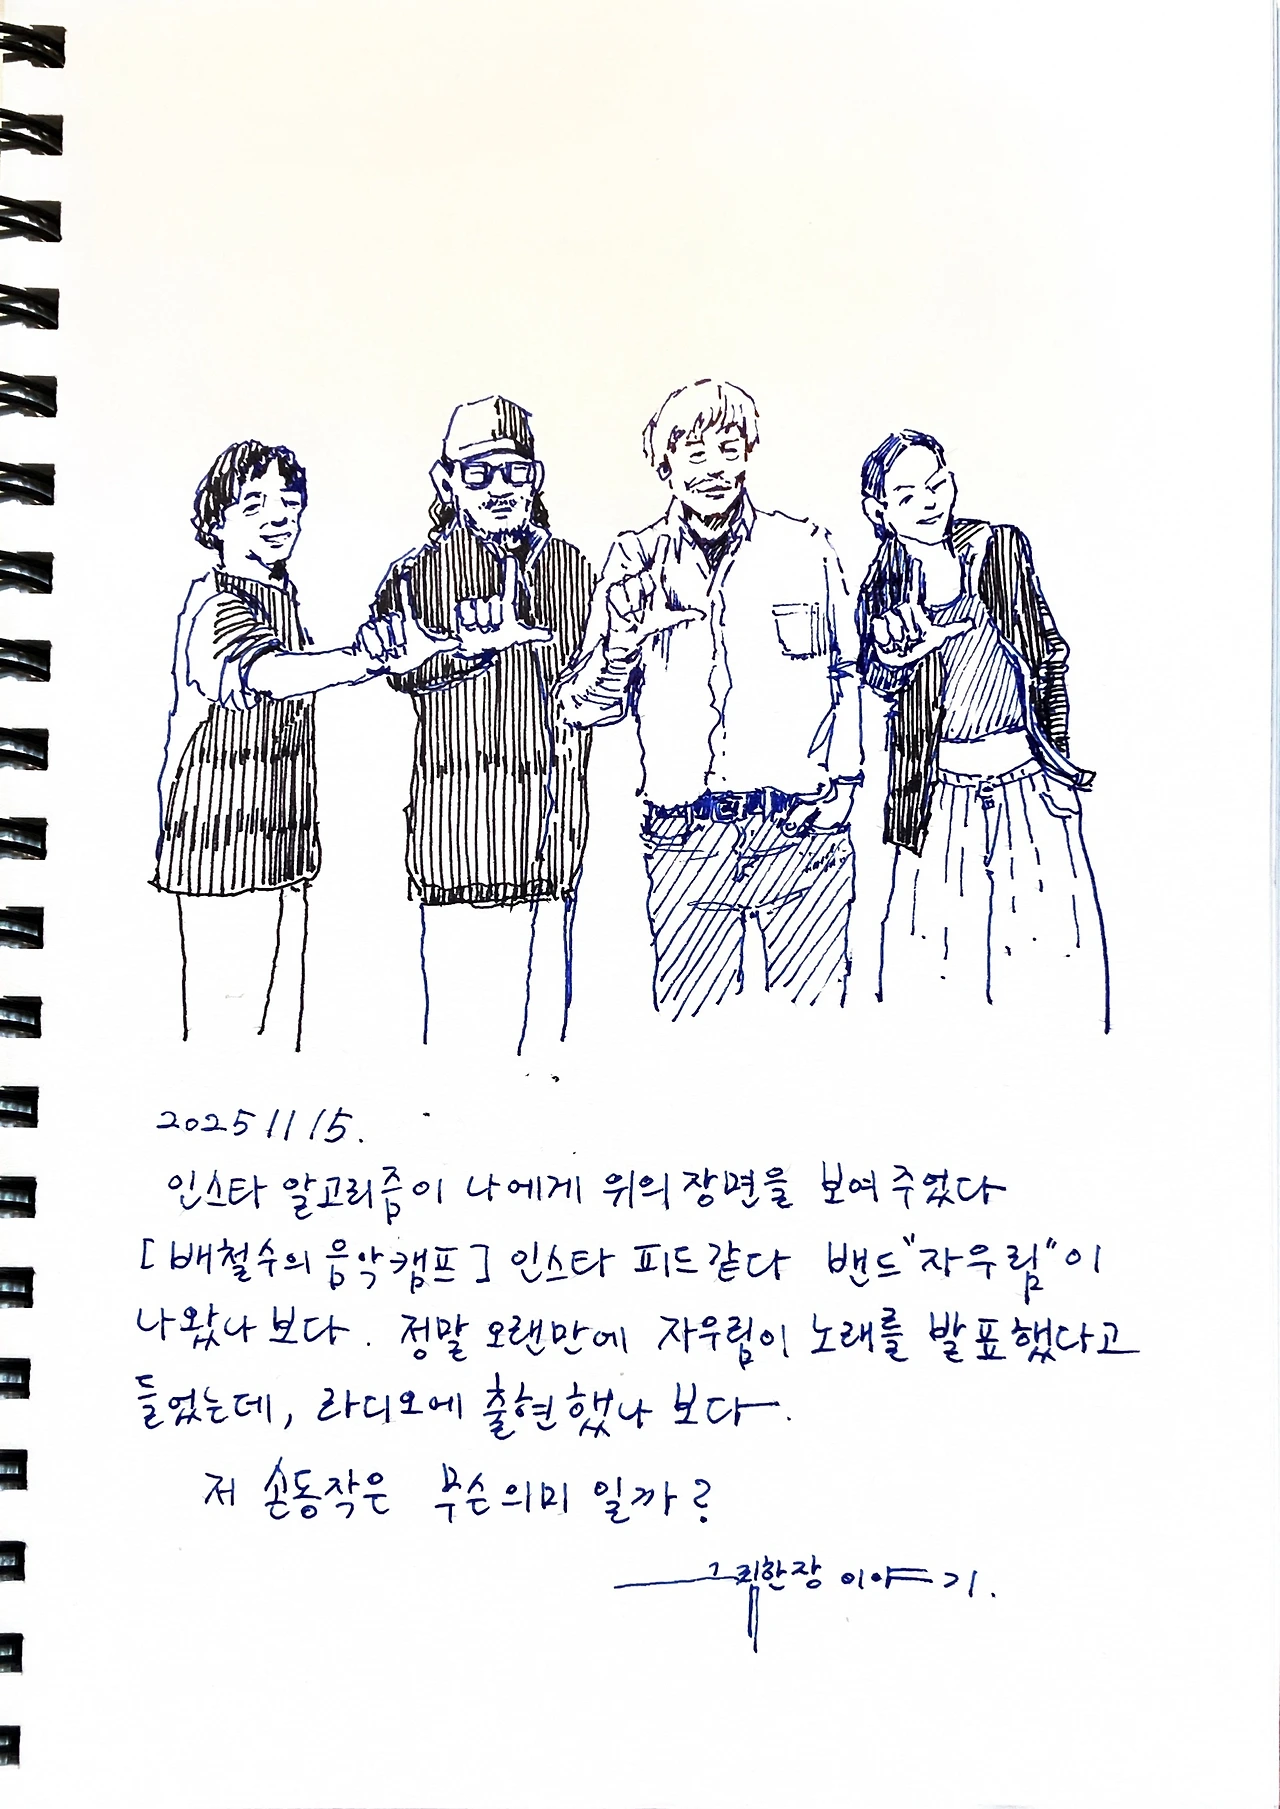 2025 11 15.
인스타 알고리즘이 나에게 위의 장면을 보여 주었다
[배철수의 음악캠프] 인스타 피드 같다 밴드 "자우림"이
나왔나 보다. 정말 오랜만에 자우림이 노래를 발표했다고
들었는데, 라디오에 출현했나 보다.
저 손동작은 무슨의미 일까?
그림한장 이야기.